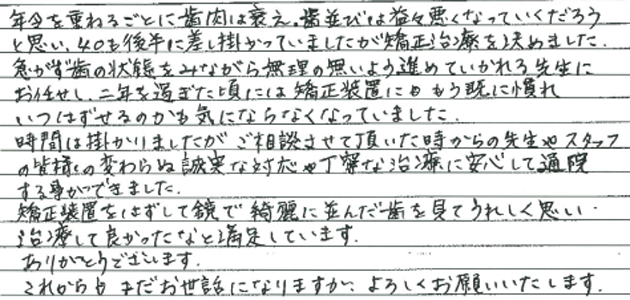 年令を重ねるごとに歯肉は衰え、歯並びは益々悪くなっていくだろう
と思い、40も後半に差し掛かっていましたが矯正治療を決めました。
急がず歯の状態をみながら無理の無いよう進めていかれる先生に
お任せし、二年を過ぎた頃には矯正装置にももう既に慣れ
いつはずせるのかも気にならなくなっていました。
時間は掛かりましたがご相談させて頂いた時からの先生やスタッフ
の皆様の変わらぬ誠実な対応や丁寧な治療に安心して通院
する事ができました。
矯正装置をはずして鏡で綺麗に並んだ歯を見てうれしく思い、
治療して良かったなと満足しています。
ありがとうございます。
これからもまだお世話になりますが、よろしくお願いいたします。